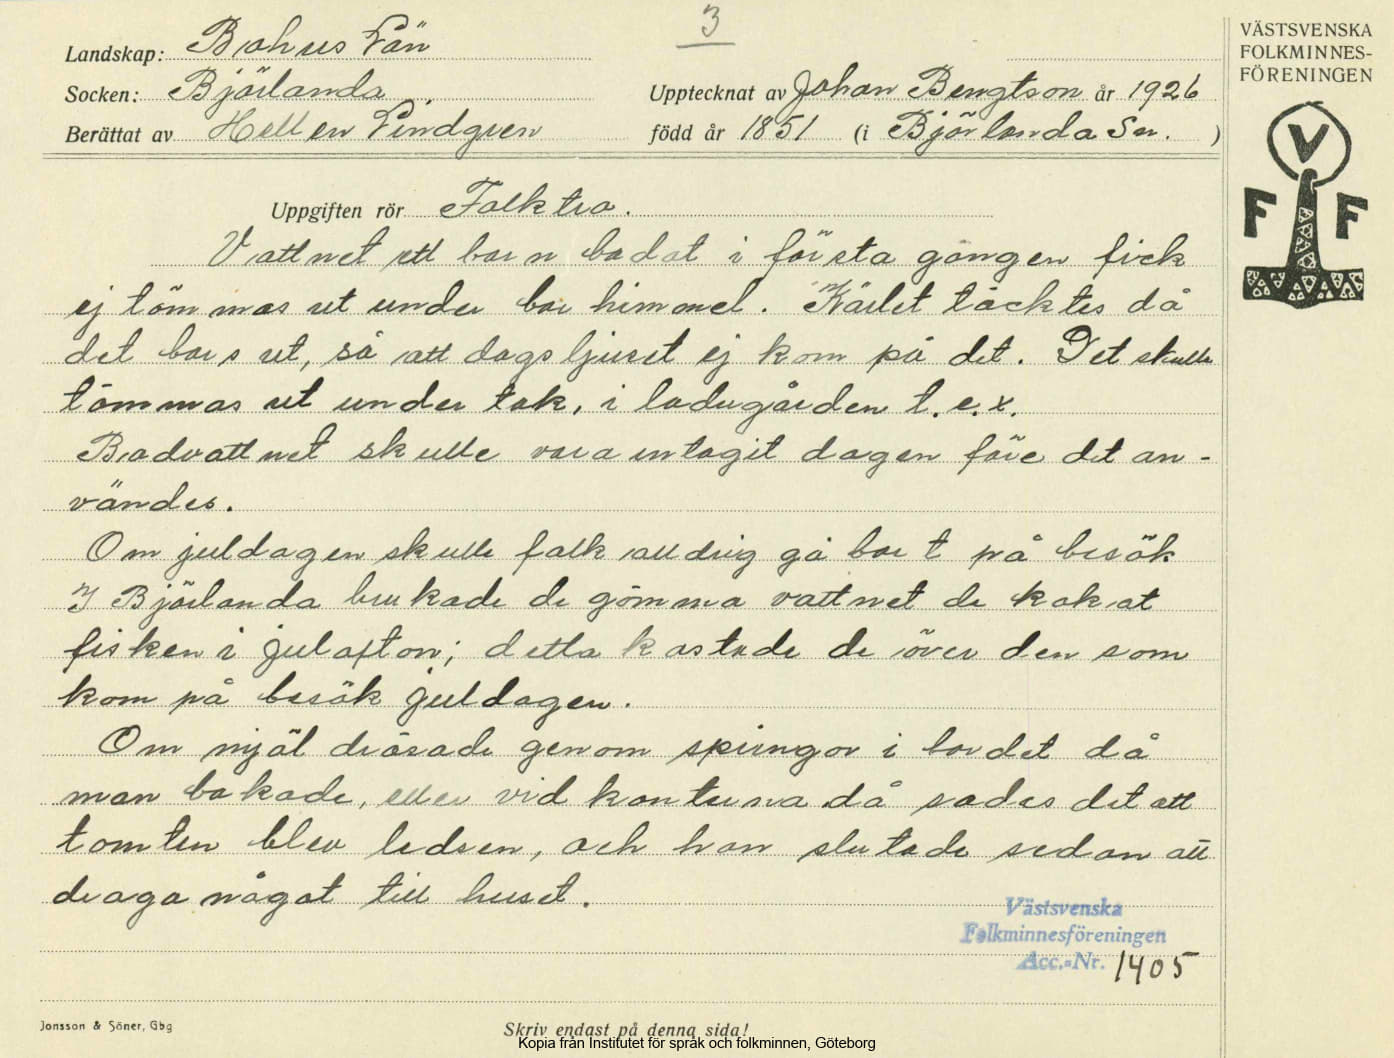 3
VÄSTSVENSKA
FOLKMINNES-
FÖRENINGEN
Landskap: Bohus Län
Socken: Björlanda Upptecknat av Johan Bengtson år 1926
Berättat av Hellen Lindgren född år 1851 (i Björlanda Sn. )
V
F F
Uppgiften rör Folktro.
Vattnet ett barn badat i första gången fick
ej tömmas ut under bar himmel. Kärlet täcktes då
det bars ut, så att dagsljuset ej kom på det. Det skulle
tömmas ut under tak, i ladugården t.e.x.
Badvattnet skulle vara intagit dagen före det an-
vändes.
Om juldagen skulle folk alldrig gå bort på besök
I Björlanda brukade de gömma vattnet de kokat
fisken i julafton; detta kastade de över den som
kom på besök juldagen.
Om mjöl dråsade genom springor i bordet då
man bakade, eller vid kanterna då sades det att
tomten blev ledsen, och han slutade sedan att
draga något till huset.
Västsvenska
Folkminnesföreningen
Acc.-Nr. 1405
Jonsson & Söner, Gbg
Skriv endast på denna sida!
Kopia från Institutet för språk och folkminnen, Göteborg